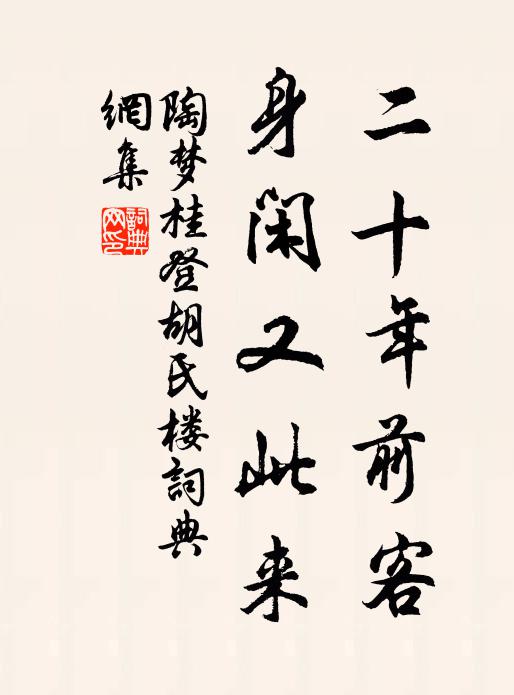 二十年前客
身閑又此来
陶梦桂登胡氏楼詞典
網集
詞典网印